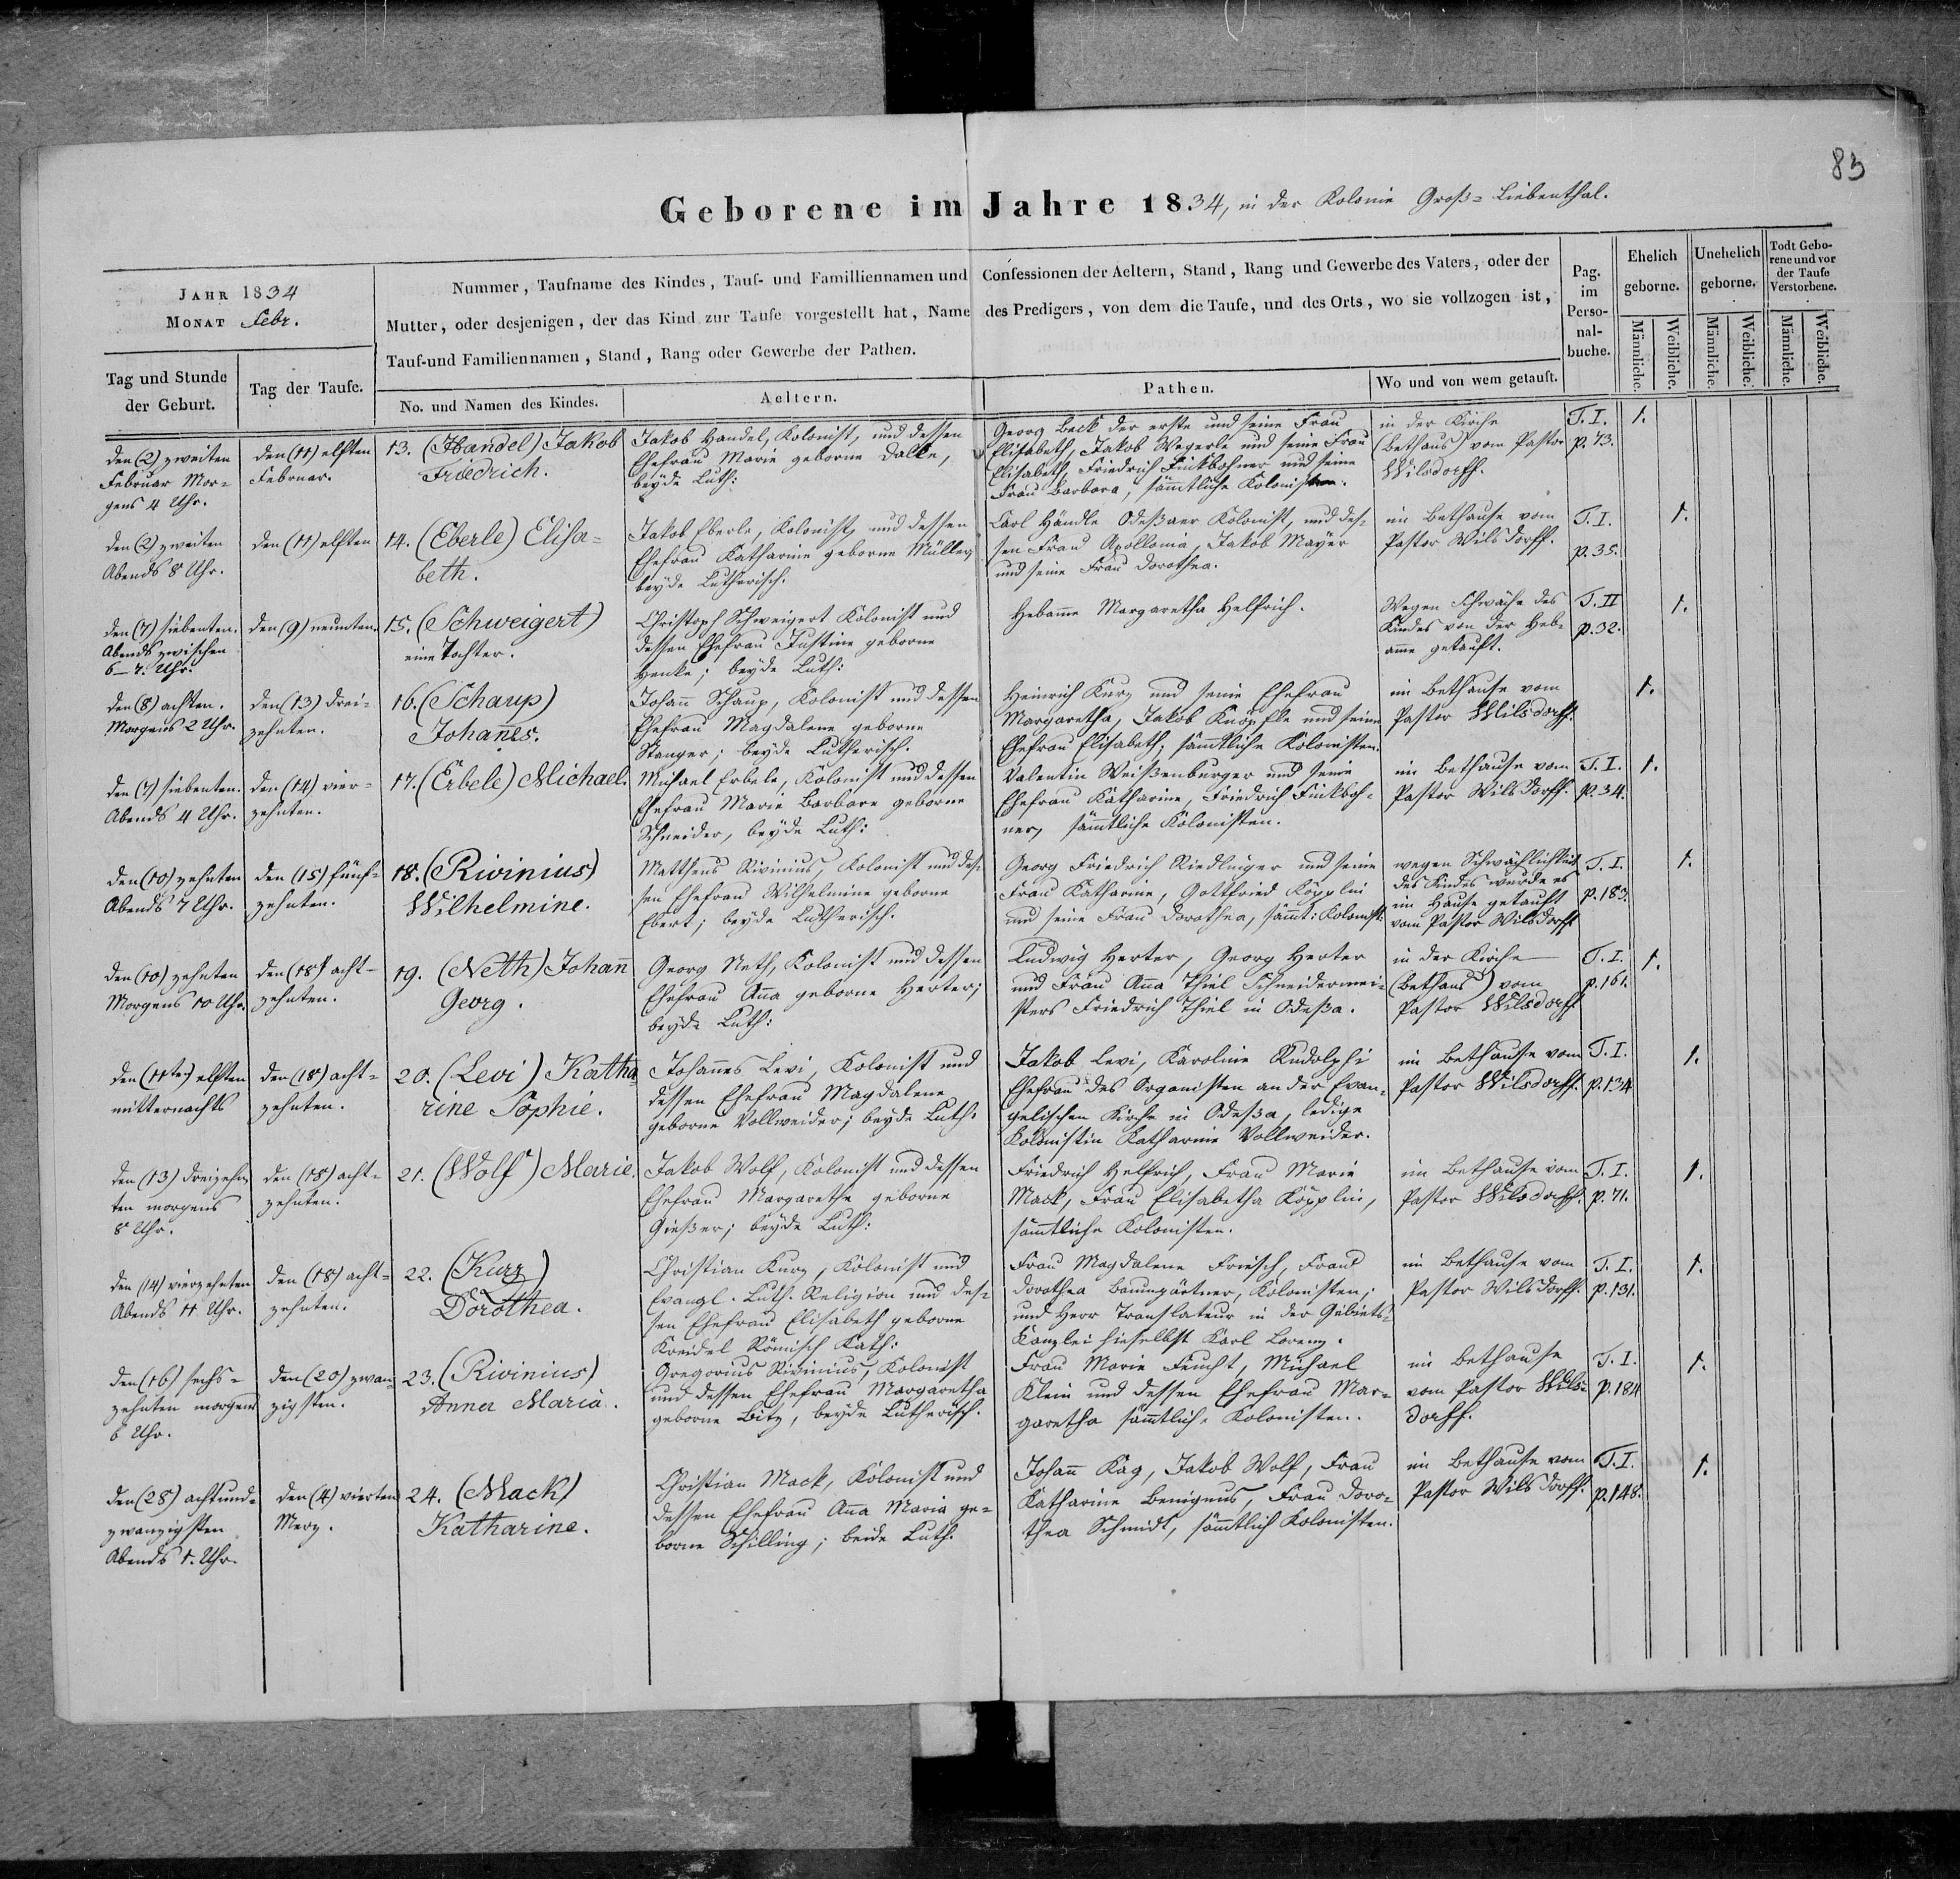 83
Geborene im Jahre 1834, in der Kolonie Groß-Liebenthal.
JAHR 1834
MONAT Febr.
Tag und Stunde
der Geburt.
Tag der Taufe.
Nummer, Taufname des Kindes, Tauf- und Familliennamen und Confessionen der Aeltern, Stand, Rang und Gewerbe des Vaters, oder der
Mutter, oder desjenigen, der das Kind zur Taufe vorgestellt hat, Name des Predigers, von dem die Taufe, und des Orts, wo sie vollzogen ist,
Tauf-und Familiennamen, Stand, Rang oder Gewerbe der Pathen.
No. und Namen des Kindes.
Aeltern.
Pathen.
Wo und von wem getauft.
Pag.
im
Perso-
nal-
buche.
Ehelich
geborne.
Männliche.
Weibliche.
Unehelich
geborne.
Männliche.
Weibliche.
Todt Gebo-
rene und vor
der Taufe
Verstorbene.
Männliche.
Weibliche.
den (2) zweiten
Februar Mor-
gens 4 Uhr.
den (11) elften
Februar.
13. (Handel) Jakob
Friedrich.
Jakob Handel, Kolonist, und dessen
Ehefrau Marie geborne Dalke,
beyde Luth:
Georg Beck der erste und seine Frau
Elisabeth, Jakob Wegerle und seine Frau
Elisabeth, Friedrich Finkbohner und seine
Frau Barbara, sämmtliche Kolonisten.
in der Kirche
(Bethaus) vom Pastor
Wilsdorff.
T. I.
p. 73.
1.
den (2) zweiten
Abends 8 Uhr.
den (11) elften
14. (Eberle) Elisa-
beth.
Jakob Eberle, Kolonist, und dessen
Ehefrau Katharine geborne Müller,
beyde Lutherisch.
Carl Händle Odeßaer Kolonist, und des-
sen Frau Apollonia, Jakob Mayer
und seine Frau Dorothea.
im Bethause vom
Pastor Wilsdorff.
T. I.
p. 35.
1.
den (7) siebenten.
Abends zwischen
6-7. Uhr.
den (9) neunten.
15. (Schweigert)
eine Tochter.
Christoph Schweigert Kolonist und
dessen Ehefrau Justine geborne
Henke; beyde Luth:
Hebamme Margaretha Helfrich.
Wegen Schwäche des
Kindes von der Heb-
amme getauft.
T. II
p. 32.
1.
den (8) achten.
Morgens 2 Uhr.
den (13) drei-
zehnten.
16. (Schaup)
Johannes.
Johann Schaup, Kolonist und dessen
Ehefrau Magdalene geborne
Stanger; beyde Lutherisch.
Heinrich Kurz und seine Ehefrau
Margaretha, Jakob Knöpfle und seine
Ehefrau Elisabeth; sämmtliche Kolonisten.
im Bethause vom
Pastor Wilsdorff.
1.
den (7) siebenten.
Abends 4 Uhr.
den (14) vier-
zehnten.
17. (Erbele) Michael.
Michael Erbele, Kolonist und dessen
Ehefrau Marie Barbara geborne
Schneider, beyde Luth:
Valentin Weißenburger und seine
Ehefrau Katharine, Friedrich Finkboh-
ner, sämmtliche Kolonisten.
im Bethause vom
Pastor Wilsdorff.
T. I.
p. 34.
1.
den (10) zehnten
Abends 7 Uhr.
den (15) fünf-
zehnten.
18. (Rivinius)
Wilhelmine.
Mattheus Rivinius, Kolonist und des-
sen Ehefrau Wilhelmine geborne
Ebert; beyde Lutherisch.
Georg Friedrich Riedlinger und seine
Frau Katharine, Gottfried Köpplin
und seine Frau Dorothea, sämmt: Kolonist:
wegen Schwächlichkeit
des Kindes wurde es
im Hause getauft
vom Pastor Wilsdorff
T. I.
p. 183.
1.
den (10) zehnten
Morgens 10 Uhr.
den (18) acht-
zehnten.
19. (Neth) Johann
Georg.
Georg Neth, Kolonist und dessen
Ehefrau Anna geborne Herter;
beyde Luth:
Ludwig Herter, Georg Herter
und Frau Anna Thiel Schneidermei-
sters Friedrich Thiel in Odeßa.
in der Kirche
(Bethaus) vom
Pastor Wilsdorff
T. I.
p. 161.
1.
den (11ten) elften
mitternachts
den (18) acht-
zehnten.
20. (Levi) Katha
rine Sophie.
Johannes Levi, Kolonist und
dessen Ehefrau Magdalene
geborne Vollweider; beyde Luth:
Jakob Levi, Karoline Rudolphi
Ehefrau des Organisten an der Evan-
gelischen Kirche in Odeßa, ledige
Kolonistin Katharine Vollweider.
im Bethause vom
Pastor Wilsdorff.
T. I.
p. 134
1.
den (13) dreizehn
ten morgens
8 Uhr.
den (18) acht-
zehnten.
21. (Wolf) Marie.
Jakob Wolf, Kolonist und dessen
Ehefrau Margarethe geborne
Gießer; beyde Luth:
Friedrich Helfrich, Frau Marie
Mack, Frau Elisabetha Köpplin,
sämmtliche Kolonisten.
im Bethause vom
Pastor Wilsdorff.
T. I.
p. 71.
1.
den (14) vierzehnten
Abends 11 Uhr.
den (18) acht-
zehnten.
22. (Kurz)
Dorothea.
Christian Kurz, Kolonist und
Evangl. Luth. Religion und des-
sen Ehefrau Elisabeth geborne
Kreidel Römisch Kath:
Frau Magdalene Friesch, Frau
Dorothea Baumgärtner, Kolonisten;
und Herr Translateur in der Gebiets-
Kanzlei hieselbst Karl Lorenz.
im Bethause vom
Pastor Wilsdorff.
T. I.
p. 131.
1.
den (16) sechs-
zehnten morgens
6 Uhr.
den (20) zwan-
zigsten.
23. (Rivinius)
Anna Maria.
Gregorius Rivinius, Kolonist
und dessen Ehefrau Margaretha
geborne Bitz, beyde Lutherisch.
Frau Marie Feucht, Michael
Klein und dessen Ehefrau Mar-
garetha sämmtliche Kolonisten.
im Bethause
vom Pastor Wils-
dorff.
T. I.
p. 184
1.
den (28) achtund-
zwanzigsten
Abends 1. Uhr.
den (4) vierten
Merz.
24. (Mack)
Katharine.
Christian Mack, Kolonist und
dessen Ehefrau Anna Maria ge-
borne Schilling; beide Luth.
Johann Käg, Jakob Wolf, Frau
Katharine Benignus, Frau Doro-
thea Schmidt, sämmtlich Kolonisten.
im Bethause vom
Pastor Wilsdorff.
T. I.
p. 148.
1.